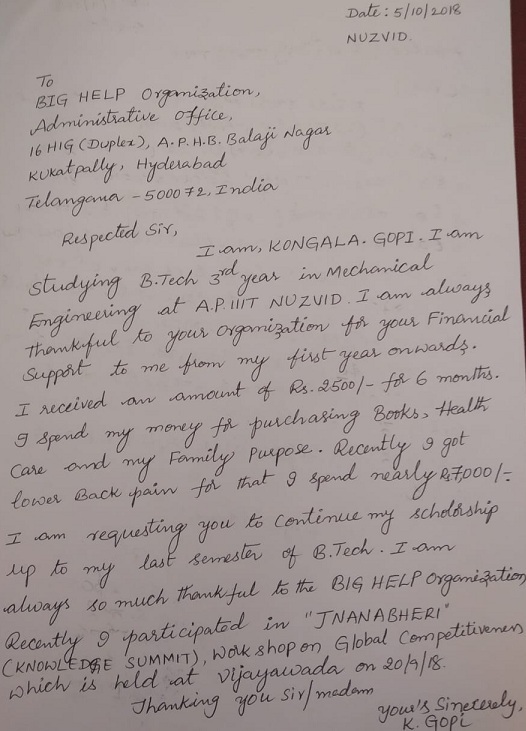 Date: 5/10/2018
NUZVID.
To
BIG HELP Organization,
Administrative office,
16 HIG (Duplex), A.P.H.B. Balaji Nagar
KUKatpally, Hyderabad
Telangana - 500072, India
Respected Sir,
I am, KONGALA. GOPI. I am
studying B.Tech 3rd year in Mechanical
Engineering at A.P.IIIT NUZVID. I am always
thankful to your organization for your Financial
Support to me from my first year onwards.
I received an amount of Rs. 2500/- for 6 months.
I spend my money for purchasing Books, Health
Care and my Family Purpose. Recently I got
lower Back pain for that I spend nearly Rs7,000/-
I am requesting you to continue my scholorship
up to my last semester of B.Tech. I am
always so much thankful to the BIG HELP Organization
Recently I participated in "JNANABHERI"
(KNOWLEDGE SUMMIT), work shop on Global Competitiveness
which is held at Vijayawada on 20/9/18.
Thanking you Sir/madam
your's Sincerely,
K. GOPI